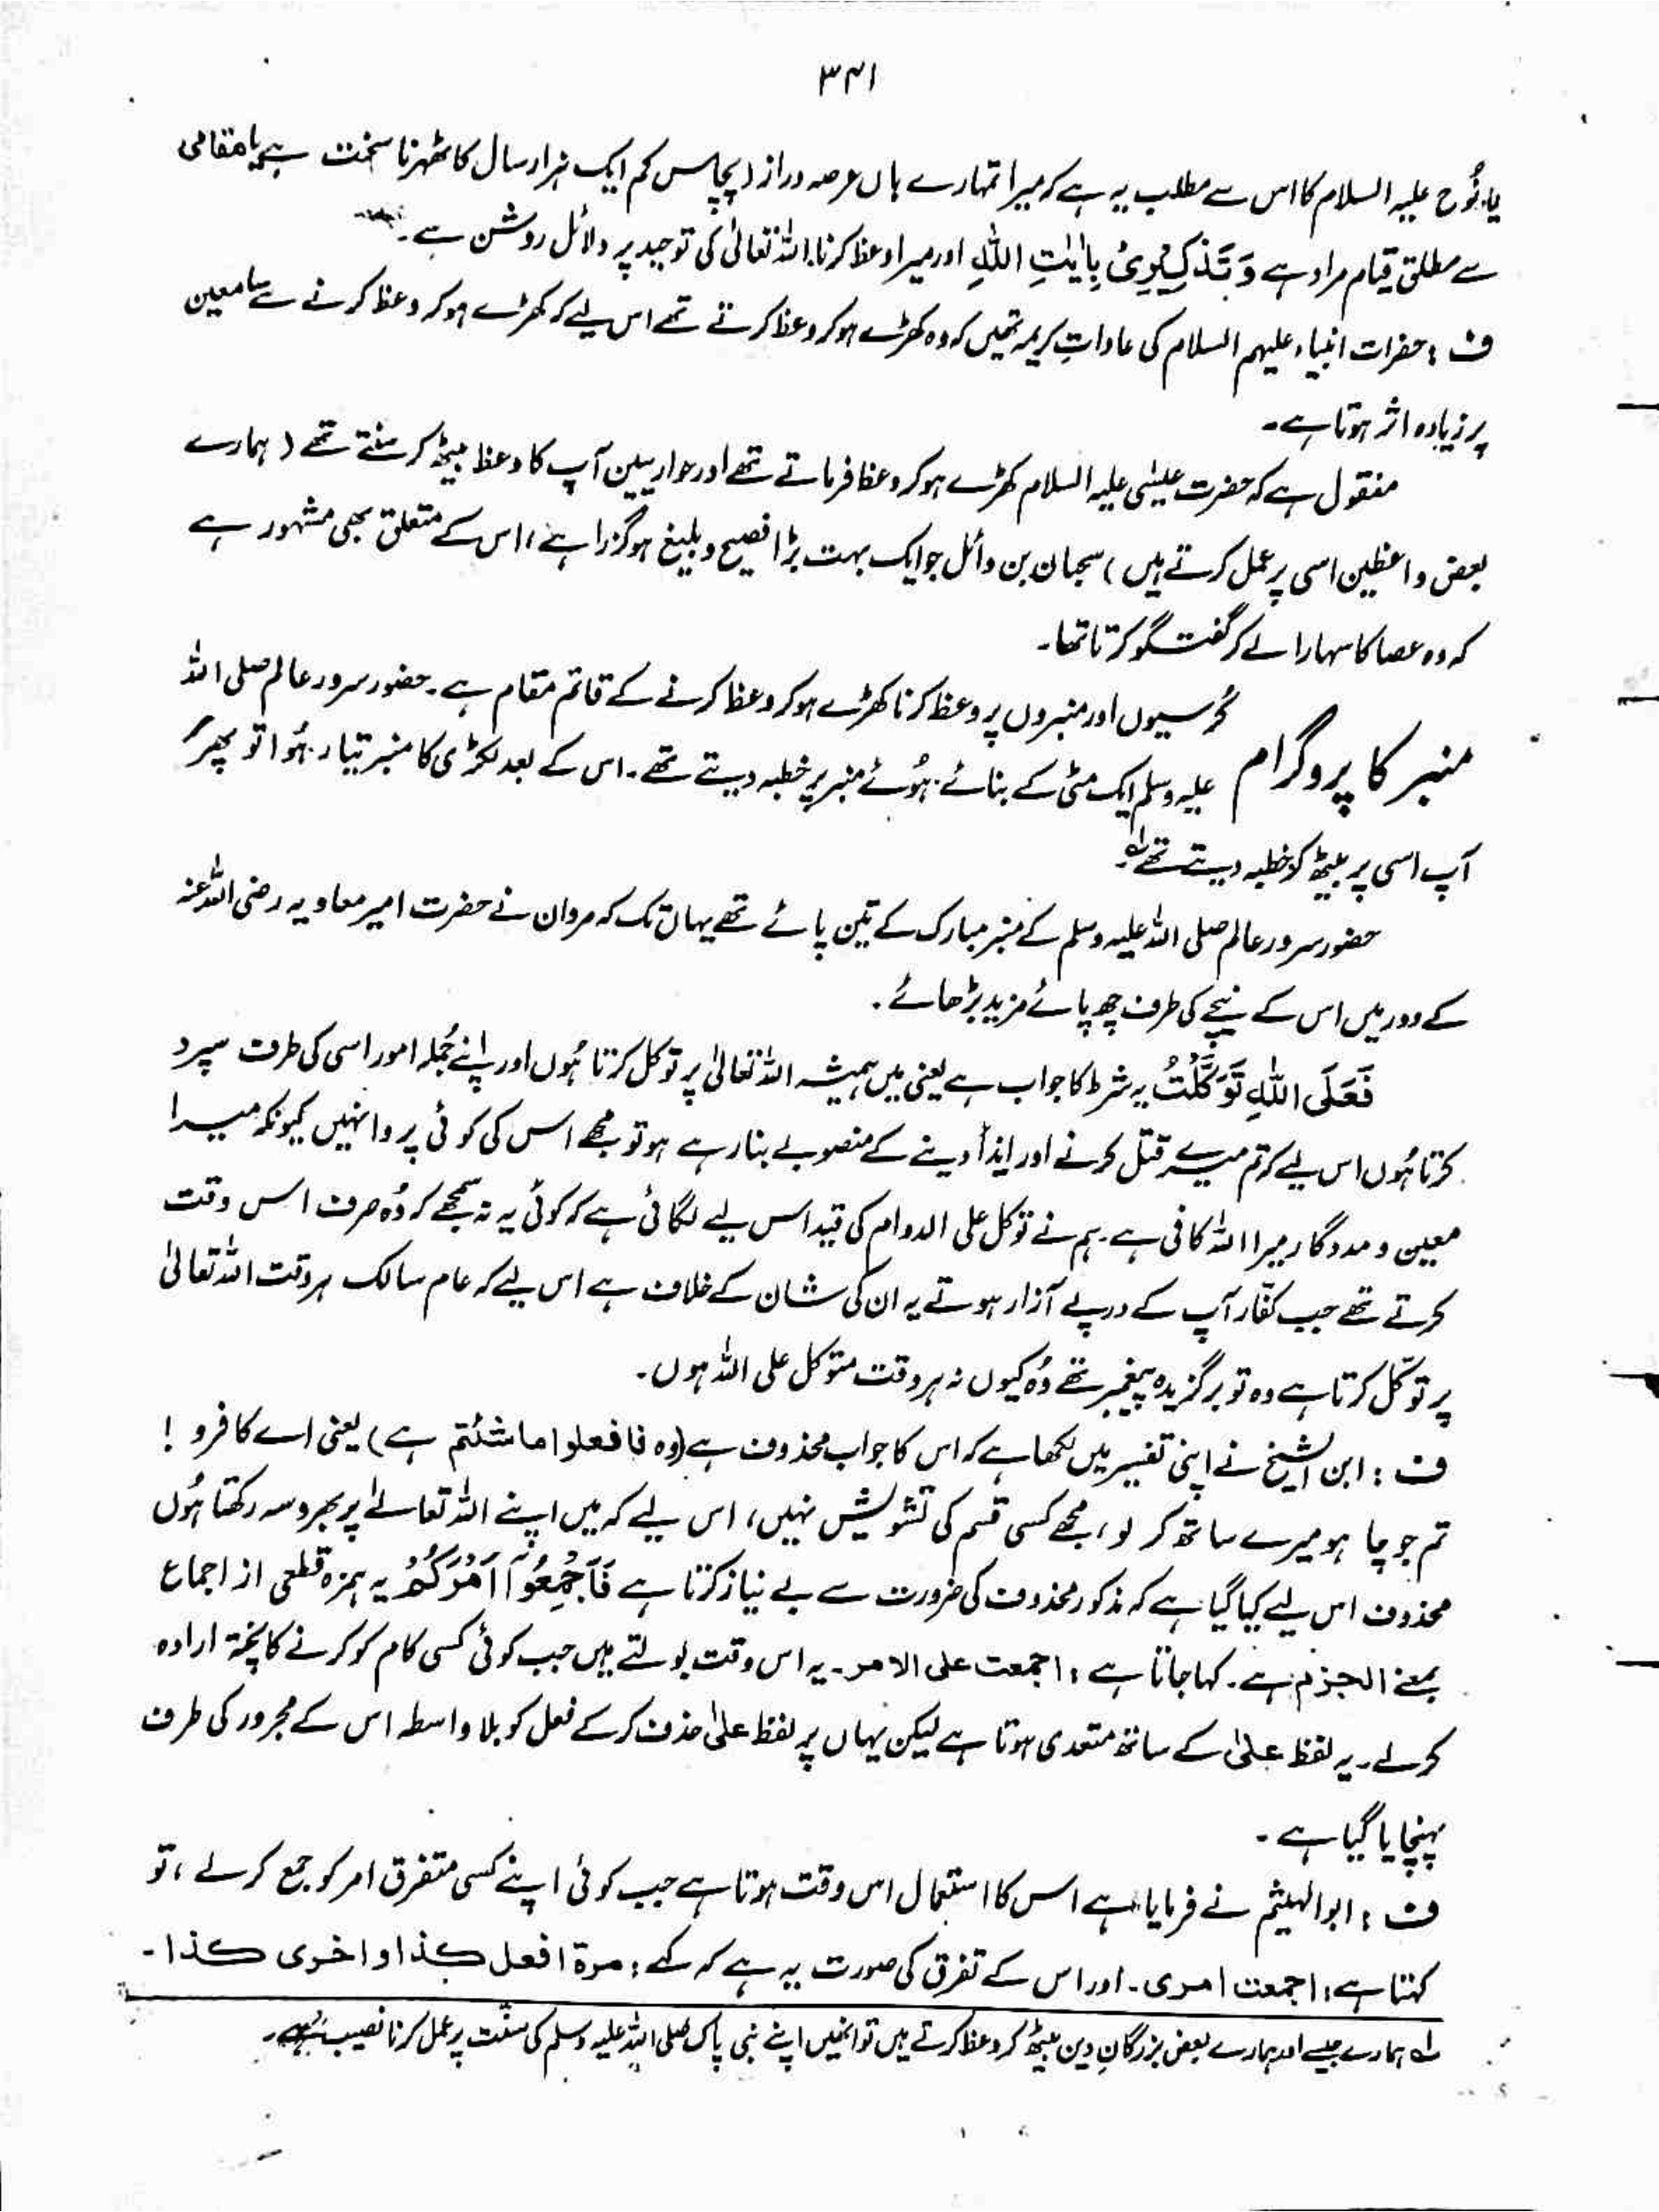 ۳۴۱
یا نُوح علیہ السلام کا اس سے مطلب یہ ہے کہ میرا تمہارے ہاں عرصہ دراز (پچاس کم ایک ہزار سال کا ٹھہرنا سخت ہے یا مقامی
سے مطلق قیام مراد ہے وَ تَذْكِيْرِىْ بِاٰيٰتِ اللّٰهِ اور میرا وعظ کرنا اللہ تعالٰی کی توحید پر دلائل روشن ہے۔
ف : حضرات انبیاء علیہم السلام کی عاداتِ کریمہ تھیں کہ وہ کھڑے ہو کر وعظ کرتے تھے اس لیے کہ کھڑے ہو کر وعظ کرنے سے سامعین
پر زیادہ اثر ہوتا ہے۔
منقول ہے کہ حضرت عیسٰی علیہ السلام کھڑے ہو کر وعظ فرماتے تھے اور حواریین آپ کا وعظ بیٹھ کر سنتے تھے (ہمارے
بعض واعظین اسی پر عمل کرتے ہیں) سحبان بن وائل جو ایک بہت بڑا فصیح و بلیغ ہو گزرا ہے، اس کے متعلق بھی مشہور ہے
کہ وہ عصا کا سہارا لے کر گفتگو کرتا تھا۔
منبر کا پروگرام
کُرسیوں اور منبروں پر وعظ کرنا کھڑے ہو کر وعظ کرنے کے قائم مقام ہے۔ حضور سرور عالم صلی اللہ
علیہ وسلم ایک مٹی کے بنائے ہُوئے منبر پر خطبہ دیتے تھے۔ اس کے بعد لکڑی کا منبر تیار ہُوا تو پھر
آپ اسی پر بیٹھ کر خطبہ دیتے تھے لہ۔
حضور سرور عالم صلی اللہ علیہ وسلم کے منبر مبارک کے تین پائے تھے یہاں تک کہ مروان نے حضرت امیر معاویہ رضی اللہ عنہ
کے دور میں اس کے نیچے کی طرف چھ پائے مزید بڑھائے۔
فَعَلَى اللّٰهِ تَوَكَّلْتُ یہ شرط کا جواب ہے یعنی میں ہمیشہ اللہ تعالٰی پر توکل کرتا ہُوں اور اپنے جُملہ امور اسی کی طرف سپرد
کرتا ہُوں اس لیے کہ تم میرے قتل کرنے اور ایذاً دینے کے منصوبے بنا رہے ہو تو مجھے اس کی کوئی پروا نہیں کیونکہ میرا
معین و مددگار میرا اللہ کافی ہے۔ ہم نے توکل علی الدوام کی قید اس لیے لگائی ہے کہ کوئی یہ نہ سمجھے کہ وُہ صرف اس وقت
کرتے تھے جب کفّار آپ کے درپے آزار ہوتے یہ ان کی شان کے خلاف ہے اس لیے کہ عام سالک ہر وقت اللہ تعالٰی
پر توکّل کرتا ہے وہ تو برگزیدہ پیغمبر تھے وُہ کیوں نہ ہر وقت متوکل علی اللہ ہوں۔
ف : ابن الشیخ نے اپنی تفسیر میں لکھا ہے کہ اس کا جواب محذوف ہے (وہ فافعلوا ما شئتم ہے) یعنی اے کافرو !
تم جو چاہو میرے ساتھ کر لو، مجھے کسی قسم کی تشویش نہیں، اس لیے کہ میں اپنے اللہ تعالےٰ پر بھروسہ رکھتا ہُوں
محذوف اس لیے کیا گیا ہے کہ مذکور محذوف کی ضرورت سے بے نیاز کرتا ہے فَاَجْمِعُوْٓا اَمْرَكُمْ یہ ہمزہ قطعی از اجماع
بمعنے الجزم ہے۔ کہا جاتا ہے : اجمعت علی الامر۔ یہ اس وقت بولتے ہیں جب کوئی کسی کام کو کرنے کا پختہ ارادہ
کرلے۔ یہ لفظ علیٰ کے ساتھ متعدی ہوتا ہے لیکن یہاں پر لفظ علیٰ حذف کر کے فعل کو بلا واسطہ اس کے مجرور کی طرف
پہنچایا گیا ہے۔
ف : ابو الہیثم نے فرمایا ہے اس کا استعمال اس وقت ہوتا ہے جب کوئی اپنے کسی متفرق امر کو جمع کرلے، تو
کہتا ہے : اجمعت امری۔ اور اس کے تفرق کی صورت یہ ہے کہ کہے : مرۃ افعل کذا و اخری کذا۔
لہ ہمارے جیسے اور ہمارے بعض بزرگانِ دین بیٹھ کر وعظ کرتے ہیں تو انھیں اپنے نبی پاک صلی اللہ علیہ وسلم کی سنّت پر عمل کرنا نصیب